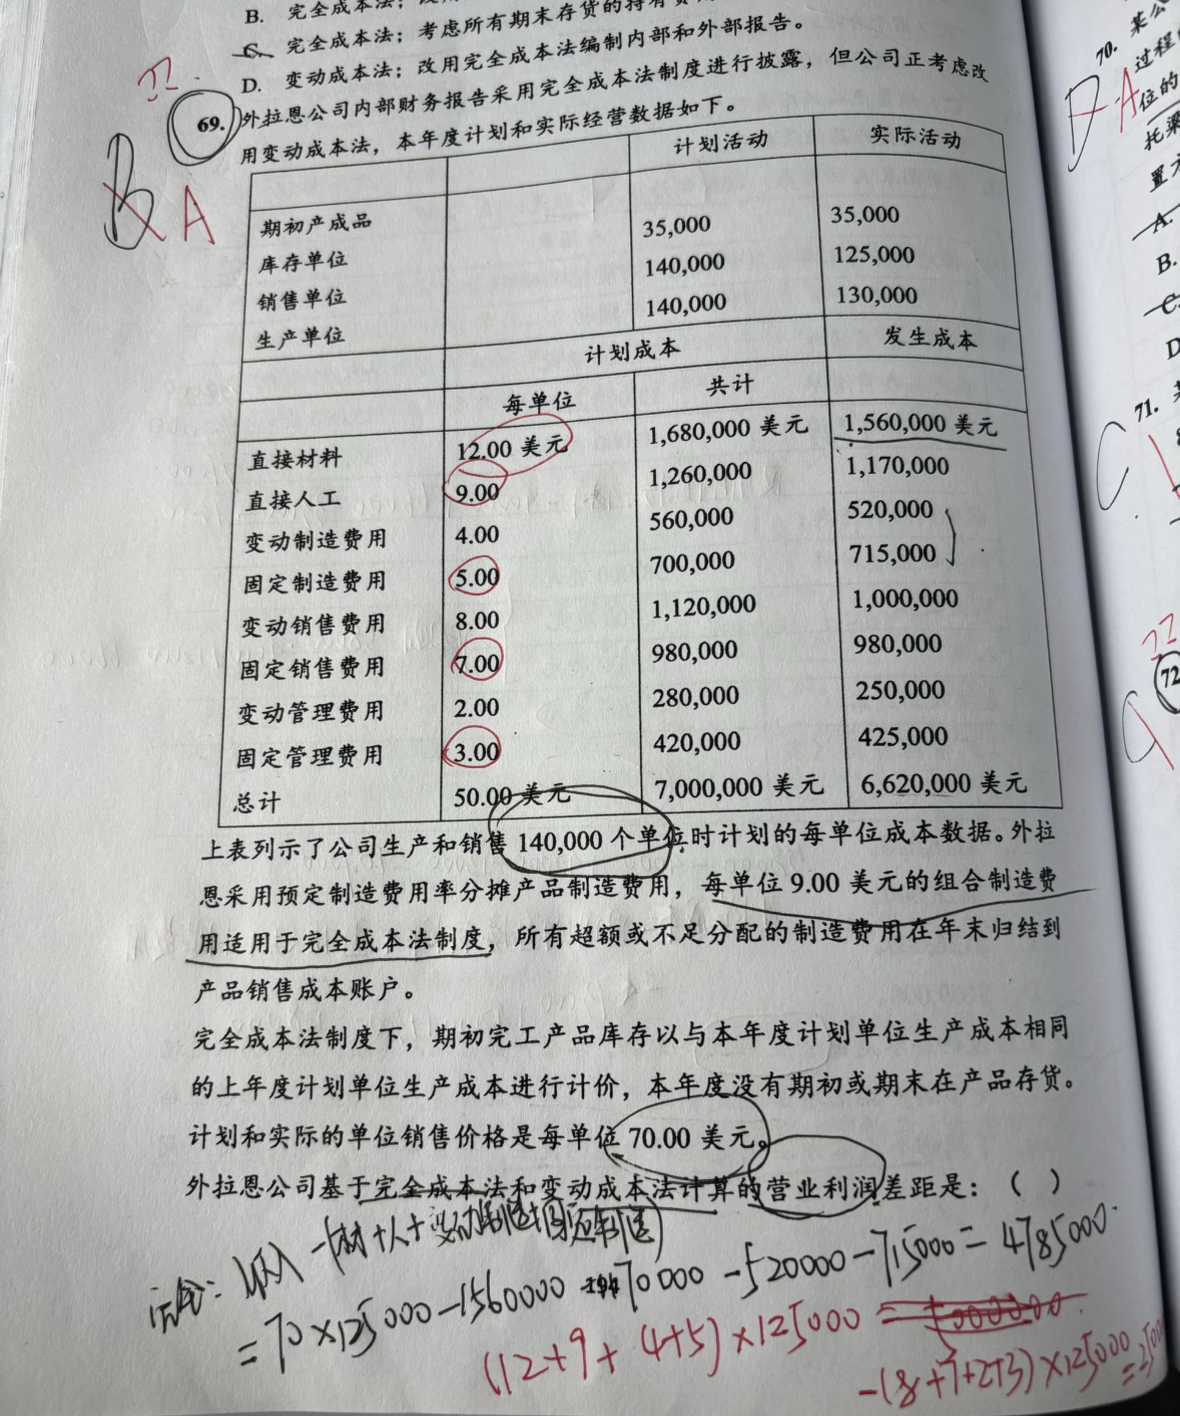 B. 完全成本法；
C. 完全成本法；考虑所有期末存货的持有
D. 变动成本法；改用完全成本法编制内部和外部报告。
??.
69. 外拉恩公司内部财务报告采用完全成本法制度进行披露，但公司正考虑改
用变动成本法，本年度计划和实际经营数据如下。
B A
计划活动 实际活动
期初产成品 35,000 35,000
库存单位 140,000 125,000
销售单位 140,000 130,000
生产单位
计划成本 发生成本
每单位 共计
直接材料 12.00 美元 1,680,000 美元 1,560,000 美元
直接人工 9.00 1,260,000 1,170,000
变动制造费用 4.00 560,000 520,000
固定制造费用 5.00 700,000 715,000
变动销售费用 8.00 1,120,000 1,000,000
固定销售费用 7.00 980,000 980,000
变动管理费用 2.00 280,000 250,000
固定管理费用 3.00 420,000 425,000
总计 50.00 美元 7,000,000 美元 6,620,000 美元
上表列示了公司生产和销售 140,000 个单位时计划的每单位成本数据。外拉
恩采用预定制造费用率分摊产品制造费用，每单位 9.00 美元的组合制造费
用适用于完全成本法制度，所有超额或不足分配的制造费用在年末归结到
产品销售成本账户。
完全成本法制度下，期初完工产品库存以与本年度计划单位生产成本相同
的上年度计划单位生产成本进行计价，本年度没有期初或期末在产品存货。
计划和实际的单位销售价格是每单位 70.00 美元。
外拉恩公司基于完全成本法和变动成本法计算的营业利润差距是：（ ）
完全: 收入 -(材+人+变动制造+固定制造)
=70×125000-1560000 70000 -520000-715000=4785000.
(12+9+(4+5)×125000 = 5000000.
-(8+7+2+3)×125000=
70. 某公
过程
位的
托梁
置方
D A
A.
B.
C.
D
71.
C
??
72